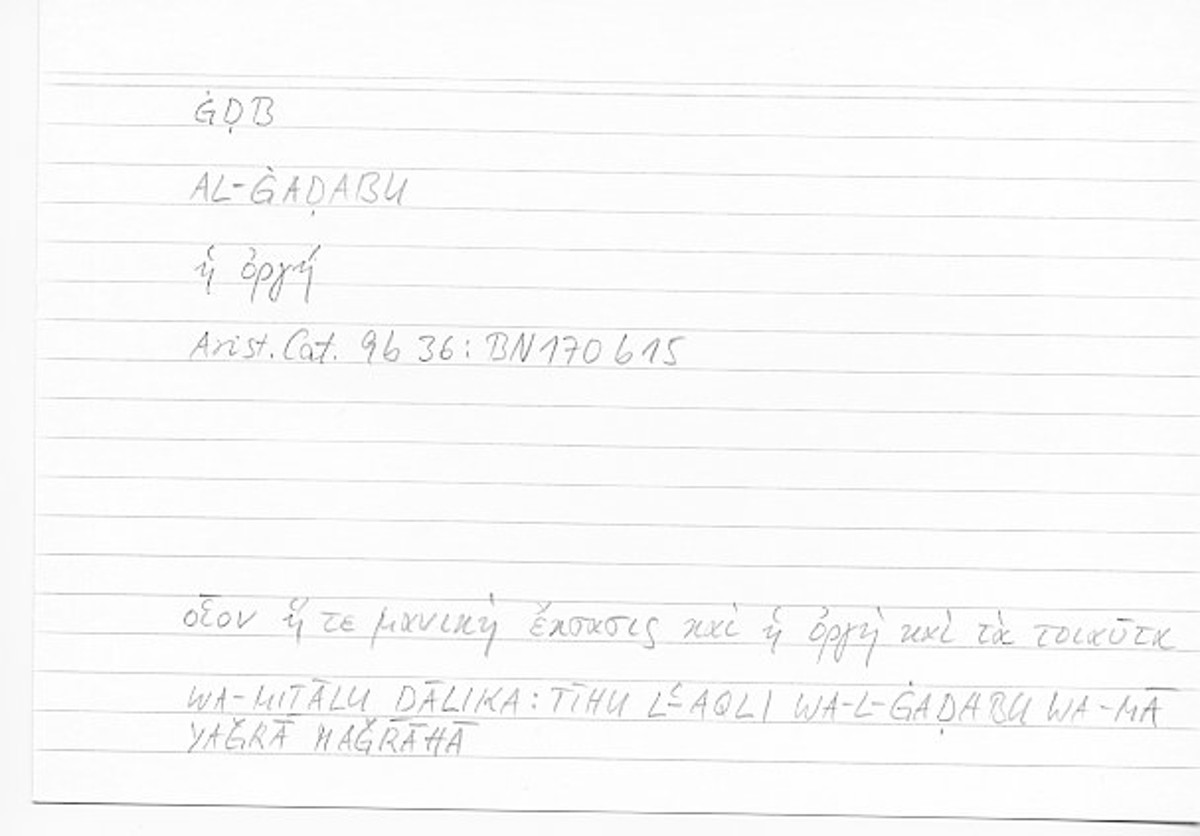 ĠḌB
AL-ĠAḌABU
ἡ ὀργή
Arist. Cat. 9b 36: BN170b15
οἷον ἥ τε μανικὴ ἔκστασις καὶ ἡ ὀργὴ καὶ τὰ τοιαῦτα
WA-MIṮĀLU ḎĀLIKA: TĪHU LʿAQLI WA-L-ĠAḌABU WA-MĀ
YAǦRĀ MAǦRĀHĀ